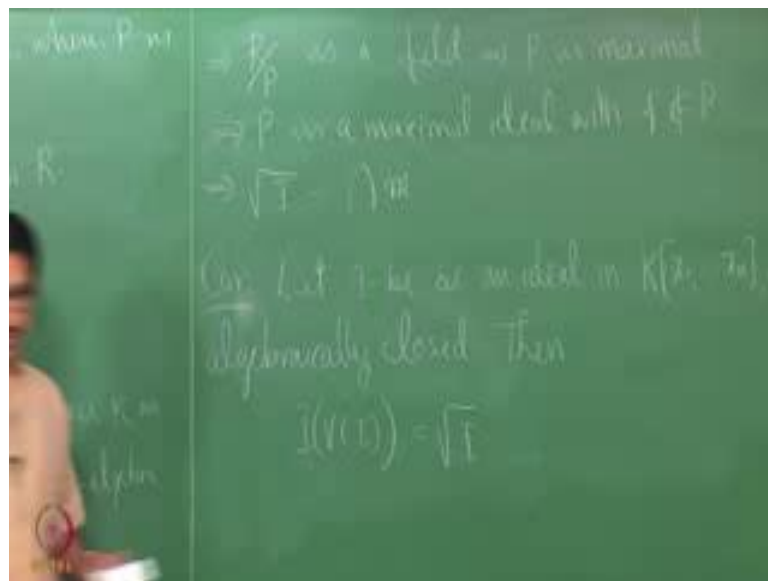 when P is
R.
K is
-algebra
⇒ R/P is a field ⇒ P is maximal
⇒ P is a maximal ideal with f ∉ P
⇒ √I = ∩ m
Cor: Let I be an ideal in K[x₁, xₙ],
algebraically closed Then
I(V(I)) = √I